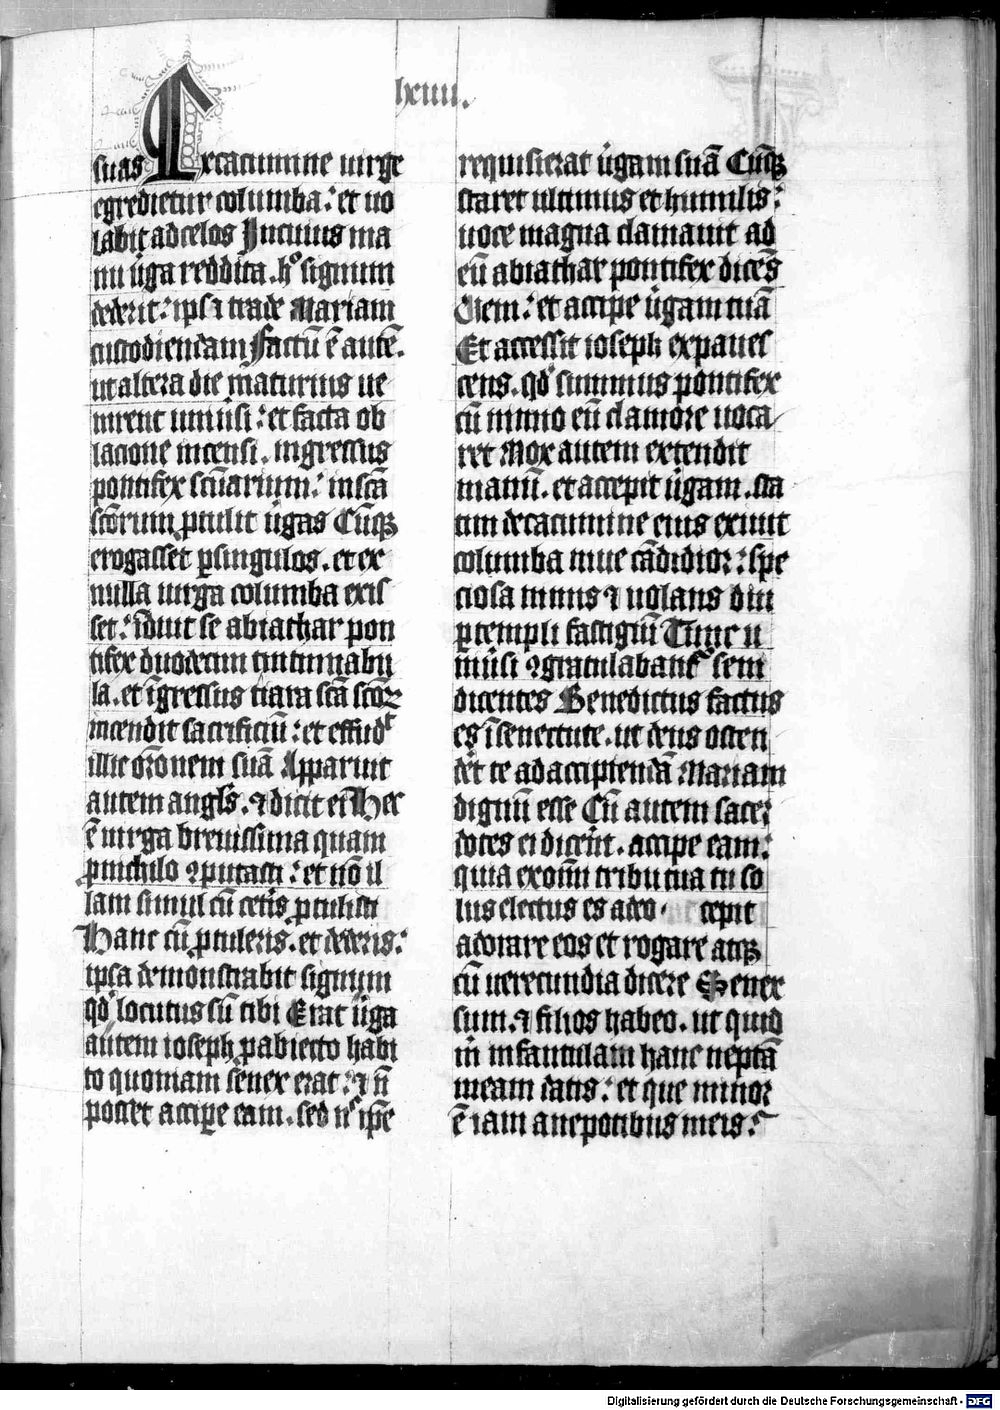 lxiiii.
suas Excacumine uirge
egredietur columba: et uo
labit ad celos Jn cuius ma
nu u̓ga reddita. h° signum
dederit: ipsi trade Mariam
custodiendam Factū ē autē.
ut altera die maturius ue
nirent uniu̓si: et facta ob
lacione incensi. ingressus
pontifex scūarium: in scā
scōrum ꝓtulit u̓gas Cūqꝫ
erogasset ꝑ singulos. et ex
nulla uirga columba exis
set: īduit se abiathar pon
tifex duodecim tintinnabu
la. et īgressus tiara scā scōꝝ
incendit sacrificiū: et effudᵗ
illic orōnem suā Apparuit
autem angl̄s. ⁊ dicit ei Hec
ē uirga breuissima quam
ꝓ nichilo ꝯputasti: et nō il
lam simul cū cetis̓ ꝓtulisti
Hanc cū ꝓtuleris. et dederis:
ipsa demonstrabit signum
qd̓ locutus sū tibi Erat u̓ga
autem ioseph ꝓ abiecto habi
to quoniam senex erat: ⁊ n̄
posset accip̓e eam. sed nᶜ ip̄e
requisierat u̓gam suā Cūqꝫ
staret ultimus et humilis:
uoce magna clamauit ad
eū abiathar pontifex dicēs
Ueni: et accipe u̓gam tuā
Et accessit ioseph expauес
cens. qd̓ summus pontifex
cū nimio eū clamore uoca
ret Mox autem extendit
manū. et accepit u̓gam. sta
tim de cacumine eius exiuit
columba niue cādidior: spe
ciosa nimis ⁊ uolans diu
ꝑ templi fastigiū Tunc u
niu̓si ꝯgratulabant᷑ seni
dicentes Benedictus factus
es ī senectute. ut deus osten
d̓et te ad accipiendā Mariam
dignū esse Cū autem sacer
dotes ei dicer̄nt. accipe eam:
quia ex om̄i tribu tua tu so
lus electus es a deo. cepit
adorare eos et rogare atqꝫ
cū uerecundia dicere Senex
sum. ⁊ filios habeo. ut quid
m̓ infantulam hanc neptā
meam datis: et que minor
ē iam a nepotibus meis:
Digitalisierung gefördert durch die Deutsche Forschungsgemeinschaft - DFG